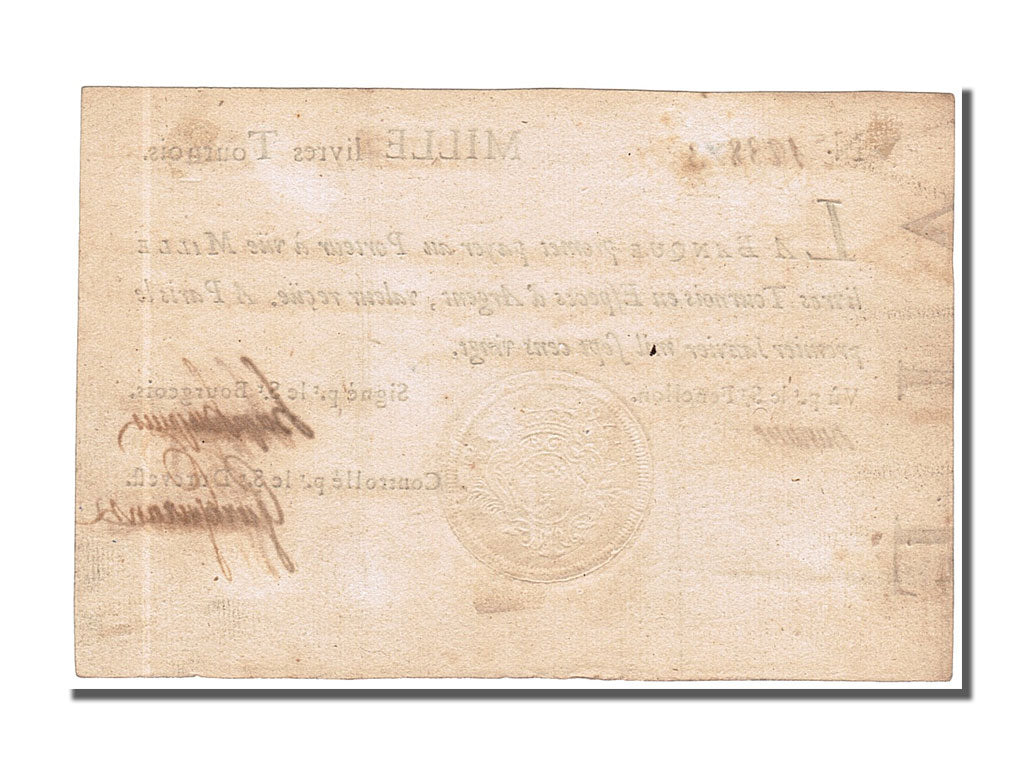 N.º MILLE livres Tournois.
LA BANQUE promet payer au Porteur à vüe MILLE
livres Tournois en Especes d'Argent, valeur reçüe. A Paris le
premier Janvier mil sept cens vingt.
Vû p.r le S.r Fenellon. Signé p.r le S.r Bourgeois.
Controllé p.r le S.r Durevest.